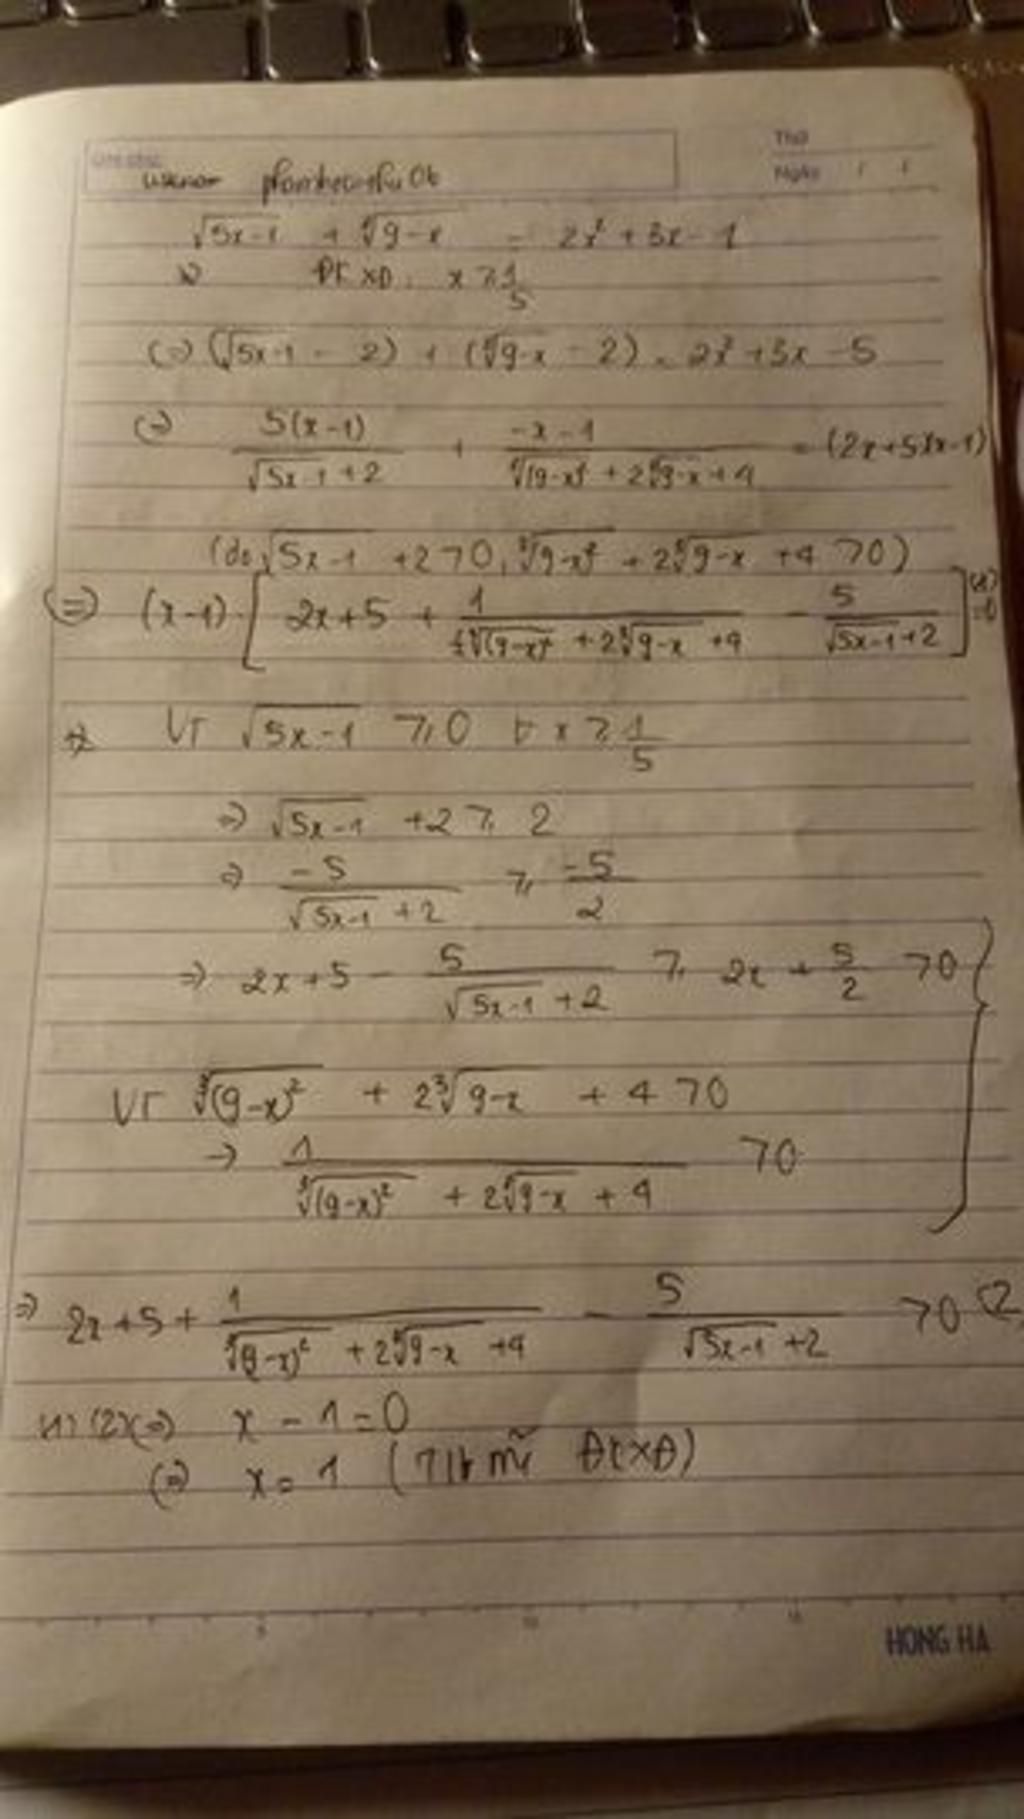 Thứ
Ngày / /
√(5x-1) + ∛(9-x) = 2x² + 3x - 1
ĐK XĐ: x ≥ 1/5
(=) (√(5x-1) - 2) + (∛(9-x) - 2) = 2x² + 3x - 5
(=) 5(x-1)/(√(5x-1) + 2) + -x-1/(∛(9-x)² + 2∛(9-x) + 4) = (2x+5)(x-1)
(do √(5x-1) + 2 > 0, ∛(9-x)² + 2∛(9-x) + 4 > 0)
(=) (x-1) · [2x + 5 + 1/(∛(9-x)² + 2∛(9-x) + 4) - 5/(√(5x-1) + 2)] = 0 (1)
Vì √(5x-1) ≥ 0 ∀ x ≥ 1/5
=> √(5x-1) + 2 ≥ 2
=> -5/(√(5x-1) + 2) ≥ -5/2
=> 2x + 5 - 5/(√(5x-1) + 2) ≥ 2x + 5/2 > 0
Vì ∛(9-x)² + 2∛(9-x) + 4 > 0
-> 1/(∛(9-x)² + 2∛(9-x) + 4) > 0
=> 2x + 5 + 1/(∛(9-x)² + 2∛(9-x) + 4) - 5/(√(5x-1) + 2) > 0 (2)
(1) (2) (=) x - 1 = 0
(=) x = 1 (ĐKXĐ)
5 10 15
HONG HA